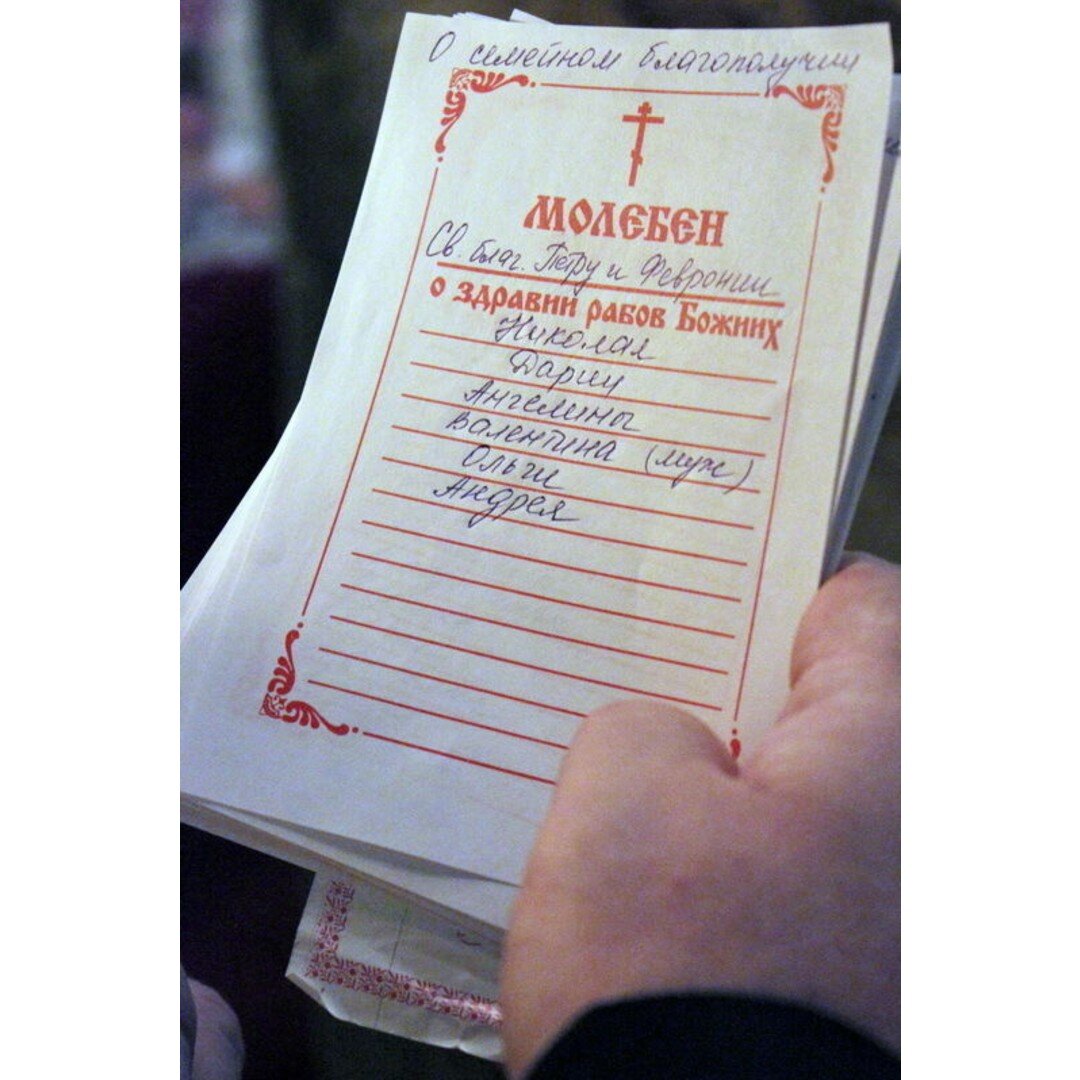 О семейном благополучии
МОЛЕБЕН
Св. благ. Петру и Февронии
о здравии рабов Божиих
Николая
Дарии
Ангелины
Валентина (муж)
Ольги
Андрея